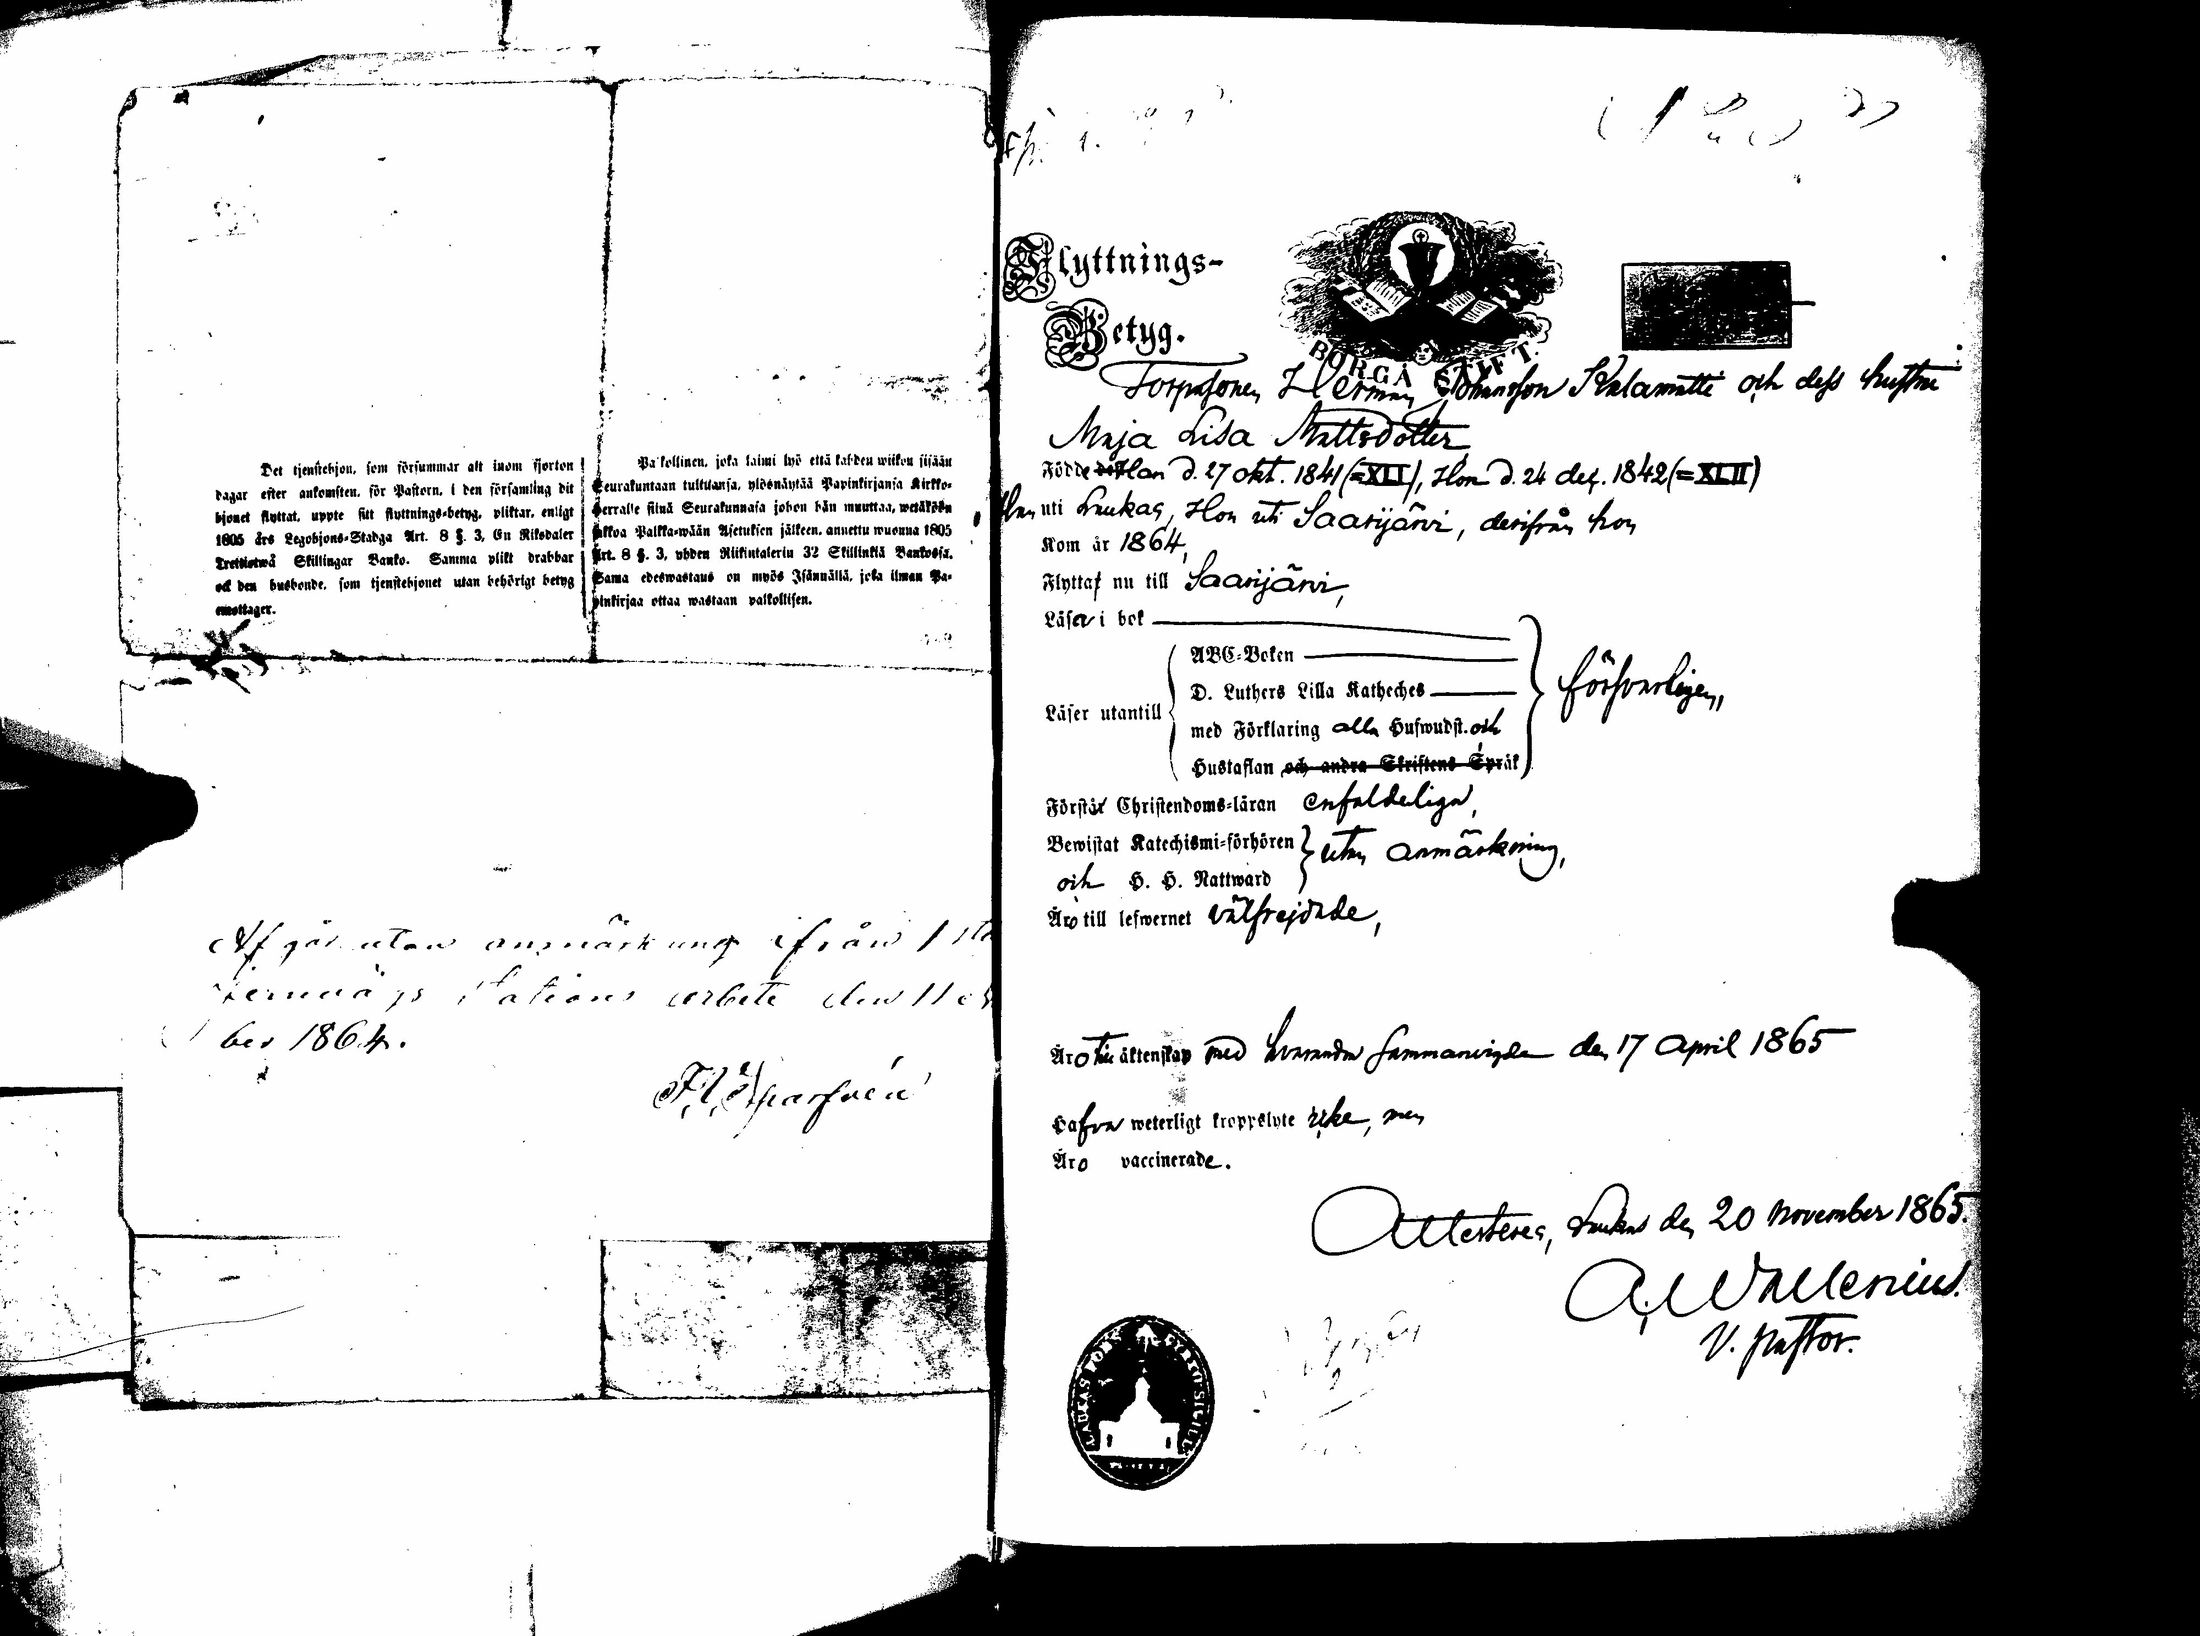 Det tjenstehjon, som försummar att inom fjorton
dagar efter ankomsten, för Pastorn, i den församling dit
hjonet flyttat, uppte sitt flyttnings-betyg, pliktar, enligt
1805 års Legohjons-Stadga Art. 8 §. 3, En Riksdaler
Trettiotwå Skillingar Banko. Samma plikt drabbar
ock den husbonde, som tjenstehjonet utan behörigt betyg
emottager.
Palkollinen, joka laimi lyö että kahden wiikon sisään
Seurakuntaan tultuansa, ylösnäytää Papinkirjansa Kirkko-
herralle siinä Seurakunnasa johon hän muuttaa, wetäköön
sakkoa Palkka-wään Asetuksen jälkeen, annettu wuonna 1805
Art. 8 §. 3, yhden Riikintalerin 32 Skillinkiä Bankossa.
Sama edeswastaus on myös Isännällä, joka ilman Pa-
pinkirjaa ottaa wastaan palkollisen.
Af går utan anmärkning ifrån
Jernvägs Stations arbete den 11
ber 1864.
Flyttnings-
Betyg.
BORGÅ STIFT.
Torparsonen Herman Johansson Kalamatti och dess hustru
Maja Lisa Mattsdotter,
Födde Han d. 27 okt. 1841 (=XLI), Hon d. 24 dec. 1842 (=XLII)
Han uti Laukas, Hon uti Saarijärvi, derifrån hon
Kom år 1864,
Flyttar nu till Saarijärvi,
Läser i bok
ABC-Boken
D. Luthers Lilla Katheches
Läser utantill
med Förklaring alla Hufwudst. och
Hustaflan och andra Skriftens Språk
försvarligen,
Förstår Christendoms-läran enfaldeliga,
Bewistat Katechismi-förhören
och H. H. Nattward
utan anmärkning,
Äro till lefwernet välfrejdade,
Äro till äktenskap med hvarandra sammanvigde den 17 April 1865
Hafva weterligt kroppslyte icke, men
Äro vaccinerade.
Attesteras, Laukas den 20 November 1865.
A. Wallenius.
V. pastor.
LAUKAS